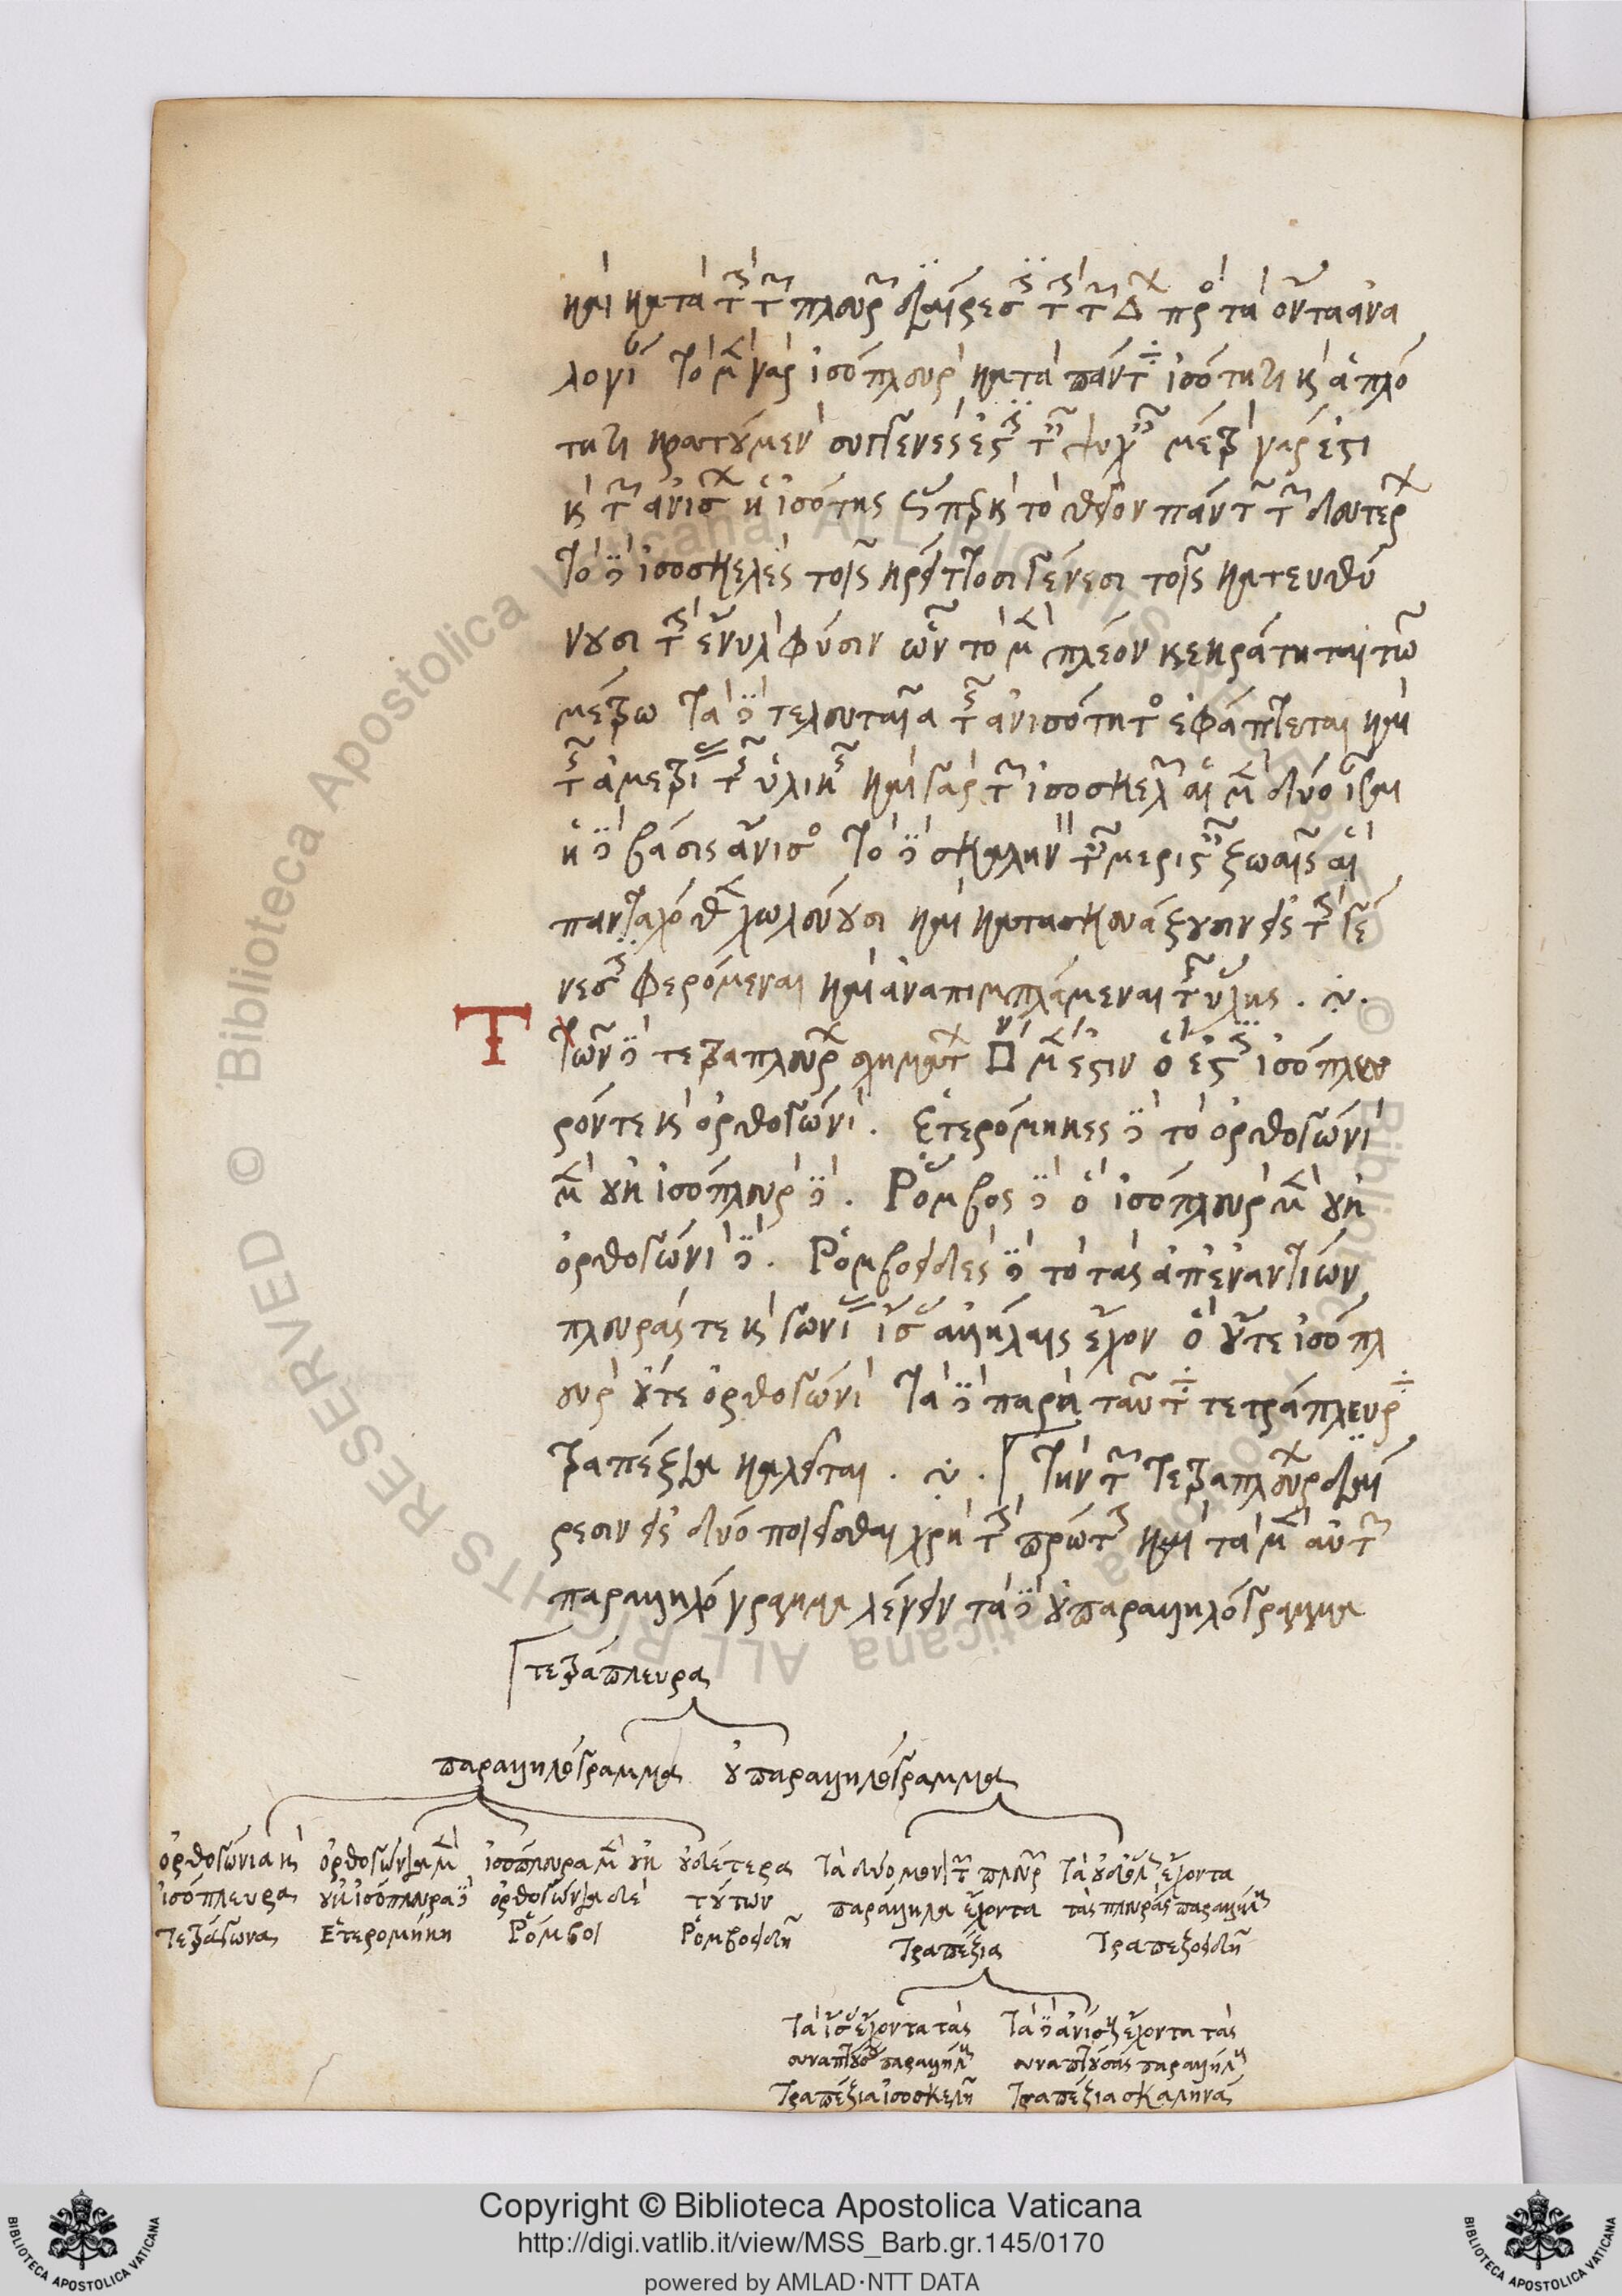 καὶ κατὰ τὴν τῶν πλευρῶν διαίρεσιν τὴν τῶν Δων πρὸς τὰ ὄντα ἀνα
λογίαν τὸ μὲν γὰρ ἰσόπλευρον κατὰ πάντα ἰσότητι καὶ ἁπλό
τητι κρατούμενον συγγενές ἐστι ταῖς ψυχαῖς μέτρον γάρ ἐστι
καὶ τῶν ἀνίσων ἡ ἰσότης ὥσπερ καὶ τὸ θεῖον πάντων τῶν δευτέρων
τὸ δὲ ἰσοσκελὲς τοῖς κρείττοσι γένεσι τοῖς κατευθύ
νουσι τὴν ἔνυλον φύσιν ὧν τὸ μὲν πλέον κεκράτηται τῷ
μέτρῳ τὰ δὲ τελευταῖα τῆς ἀνισότητος ἐφάπτεται καὶ
τῆς ἀμετρίας τῆς ὑλικῆς καὶ γὰρ τῶν ἰσοσκελῶν αἱ μὲν δύο ἴσαι
ἡ δὲ βάσις ἄνισος τὸ δὲ σκαληνὸν ταῖς μερισταῖς ζωαῖς αἳ
πανταχόθεν χωλεύουσι καὶ κατασκευάζουσιν εἰς τὴν γέ
νεσιν φερόμεναι καὶ ἀναπιμπλάμεναι τῆς ὕλης . ~ .
Τῶν δὲ τετραπλεύρων σχημάτων □ον μέν ἐστιν ὅ ἐστιν ἰσόπλευ
ρόν τε καὶ ὀρθογώνιον . Ἑτερόμηκες δὲ τὸ ὀρθογώνιον
μὲν οὐκ ἰσόπλευρον δέ . Ῥόμβος δὲ ὁ ἰσόπλευρον μὲν οὐκ
ὀρθογώνιον δέ . Ῥομβοειδὲς δὲ τὸ τὰς ἀπεναντίων
πλευράς τε καὶ γωνίας ἴσας ἀλλήλαις ἔχον ὃ οὔτε ἰσόπλ
ευρον οὔτε ὀρθογώνιον τὰ δὲ παρὰ ταῦτα τετράπλευρα
τραπέζια καλεῖται . ~ . Τὴν τῶν τετραπλεύρων διαί
ρεσιν εἰς δύο ποιεῖσθαι χρὴ τὴν πρώτην καὶ τὰ μὲν αὐτῶν
παραλληλόγραμμα λέγειν τὰ δὲ οὐ παραλληλόγραμμα
τετράπλευρα
παραλληλόγραμμα οὐ παραλληλόγραμμα
ὀρθογώνια καὶ ἰσόπλευρα τετράγωνα
ὀρθογώνια μὲν οὐκ ἰσόπλευρα δὲ Ἑτερομήκη
ἰσόπλευρα μὲν οὐκ ὀρθογώνια δὲ Ῥόμβοι
οὐδέτερα τούτων Ῥομβοειδῆ
τὰ δύο μόνον τῶν πλευρῶν παράλληλα ἔχοντα Τραπέζια
τὰ οὐδόλως ἔχοντα τὰς πλευρὰς παραλλήλους Τραπεζοειδῆ
τὰ ἴσας ἔχοντα τὰς συναπτούσας παραλλήλους Τραπέζια ἰσοσκελῆ
τὰ δὲ ἀνίσους ἔχοντα τὰς συναπτούσας παραλλήλους Τραπέζια σκαληνά
Copyright © Biblioteca Apostolica Vaticana
http://digi.vatlib.it/view/MSS_Barb.gr.145/0170
powered by AMLAD·NTT DATA
BIBLIOTECA APOSTOLICA VATICANA
BIBLIOTECA APOSTOLICA VATICANA